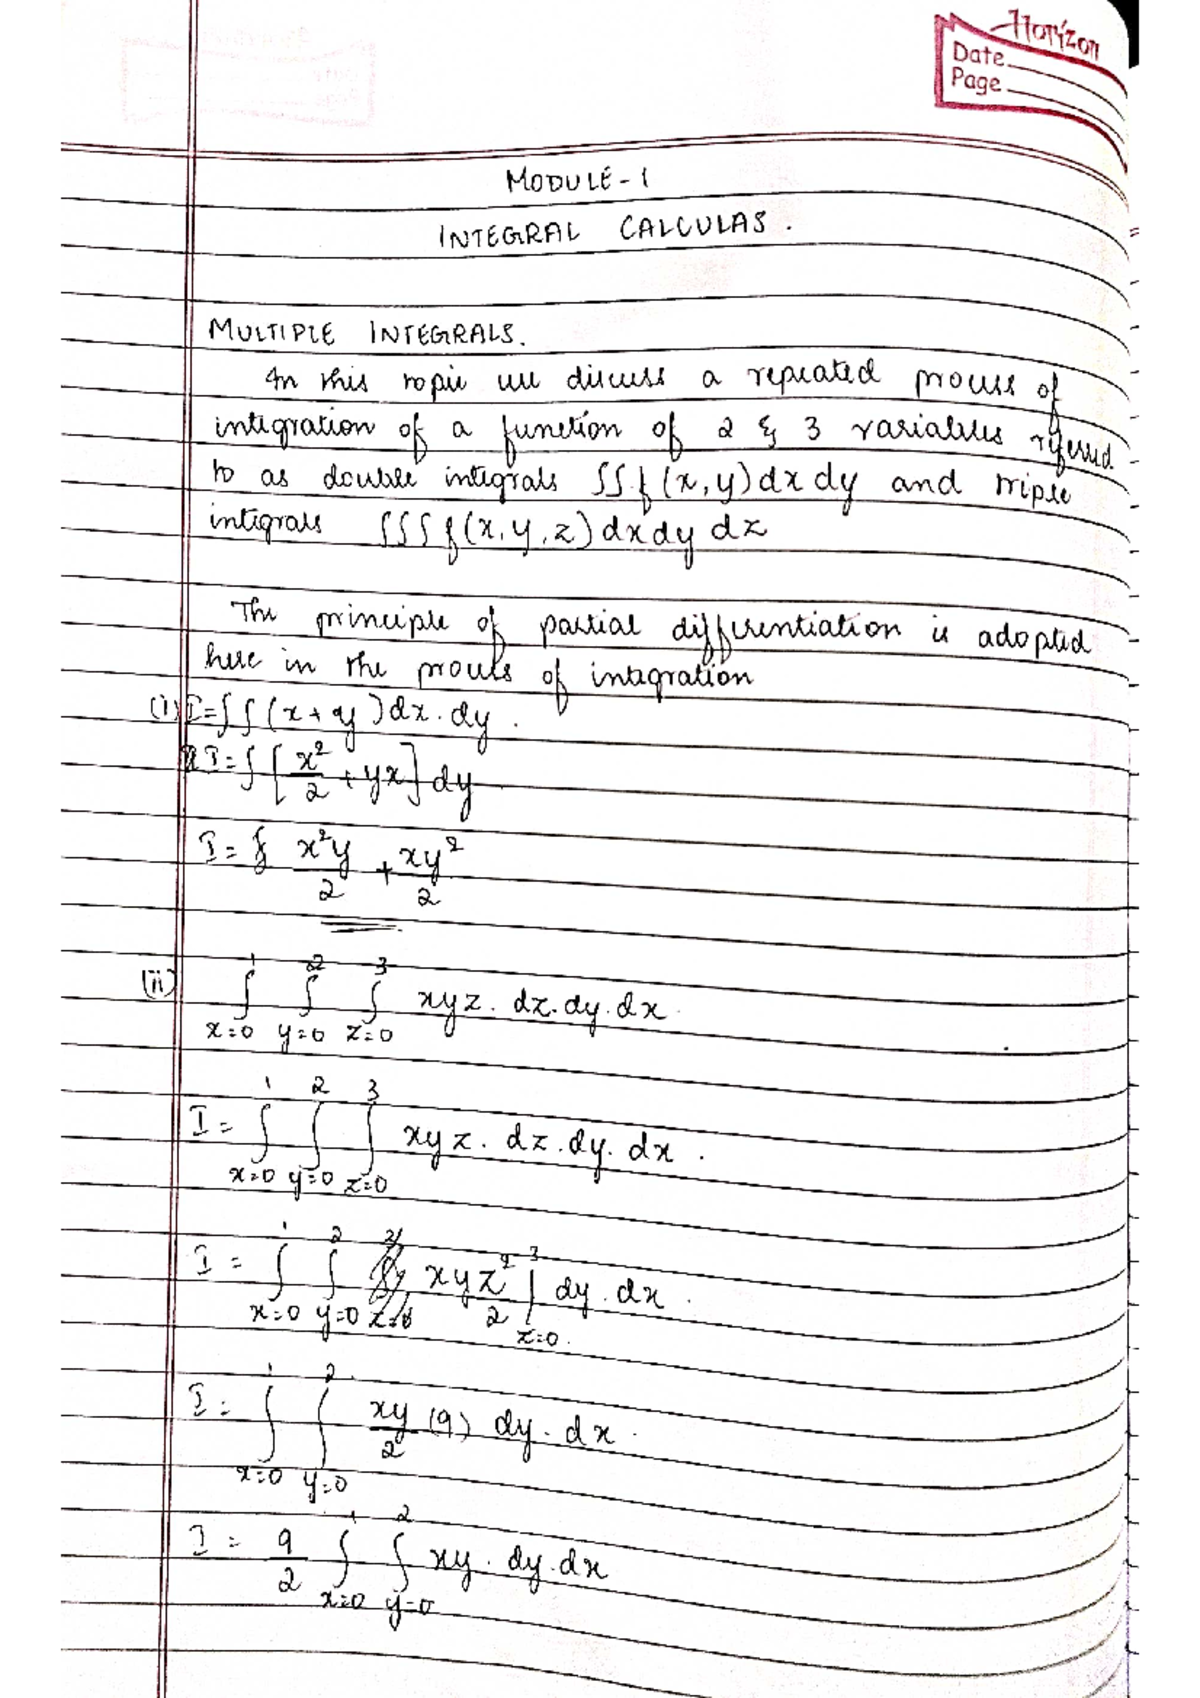 Horizon
Date
Page
MODULE-1
INTEGRAL CALCULAS.
MULTIPLE INTEGRALS.
In this topic we discuss a repeated process of
integration of a function of 2 & 3 variables referred
to as double integrals ∫∫f(x,y)dx dy and triple
integrals ∫∫∫f(x,y,z)dxdy dz
The principle of partial differentiation is adopted
here in the process of integration
(i) I=∫∫(x+y)dx.dy.
I=∫[x²/2 + yx]dy
I= x²y/2 + xy²/2
(ii) ∫_{x=0}^{1} ∫_{y=0}^{2} ∫_{z=0}^{3} xyz. dz.dy.dx
I= ∫_{x=0}^{1} ∫_{y=0}^{2} ∫_{z=0}^{3} xyz. dz.dy.dx.
I = ∫_{x=0}^{1} ∫_{y=0}^{2} xyz²/2 |_{z=0}^{3} dy.dx.
I= ∫_{x=0}^{1} ∫_{y=0}^{2} xy/2 (9) dy.dx.
I = 9/2 ∫_{x=0}^{1} ∫_{y=0}^{2} xy.dy.dx